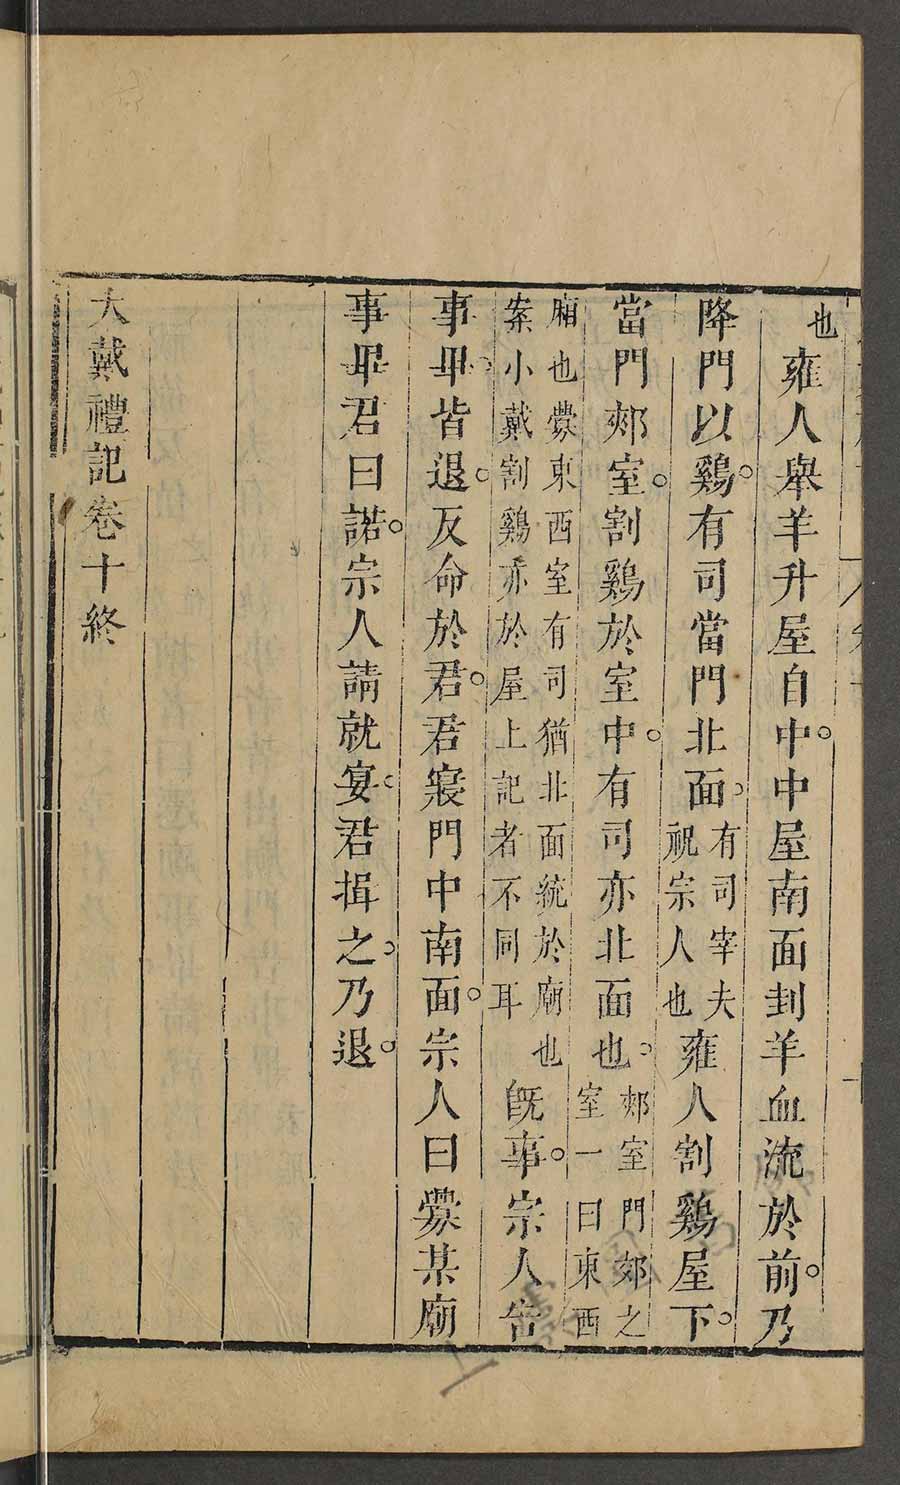 也雍人舉羊升屋自中。中屋南面刲羊血流於前。乃
降門以鷄。有司當門北面。有司宰夫祝宗人也雍人割鷄屋下。
當門郟室。割鷄於室中。有司亦北面也。郟室門郟之室一曰東西
廂也釁東西室有司猶北面統於廟也案小戴割鷄亦於屋上記者不同耳既事。宗人告
事畢。皆退。反命於君。君寢門中南面。宗人曰釁某廟
事畢君曰諾。宗人請就宴。君揖之。乃退。
大戴禮記卷十終